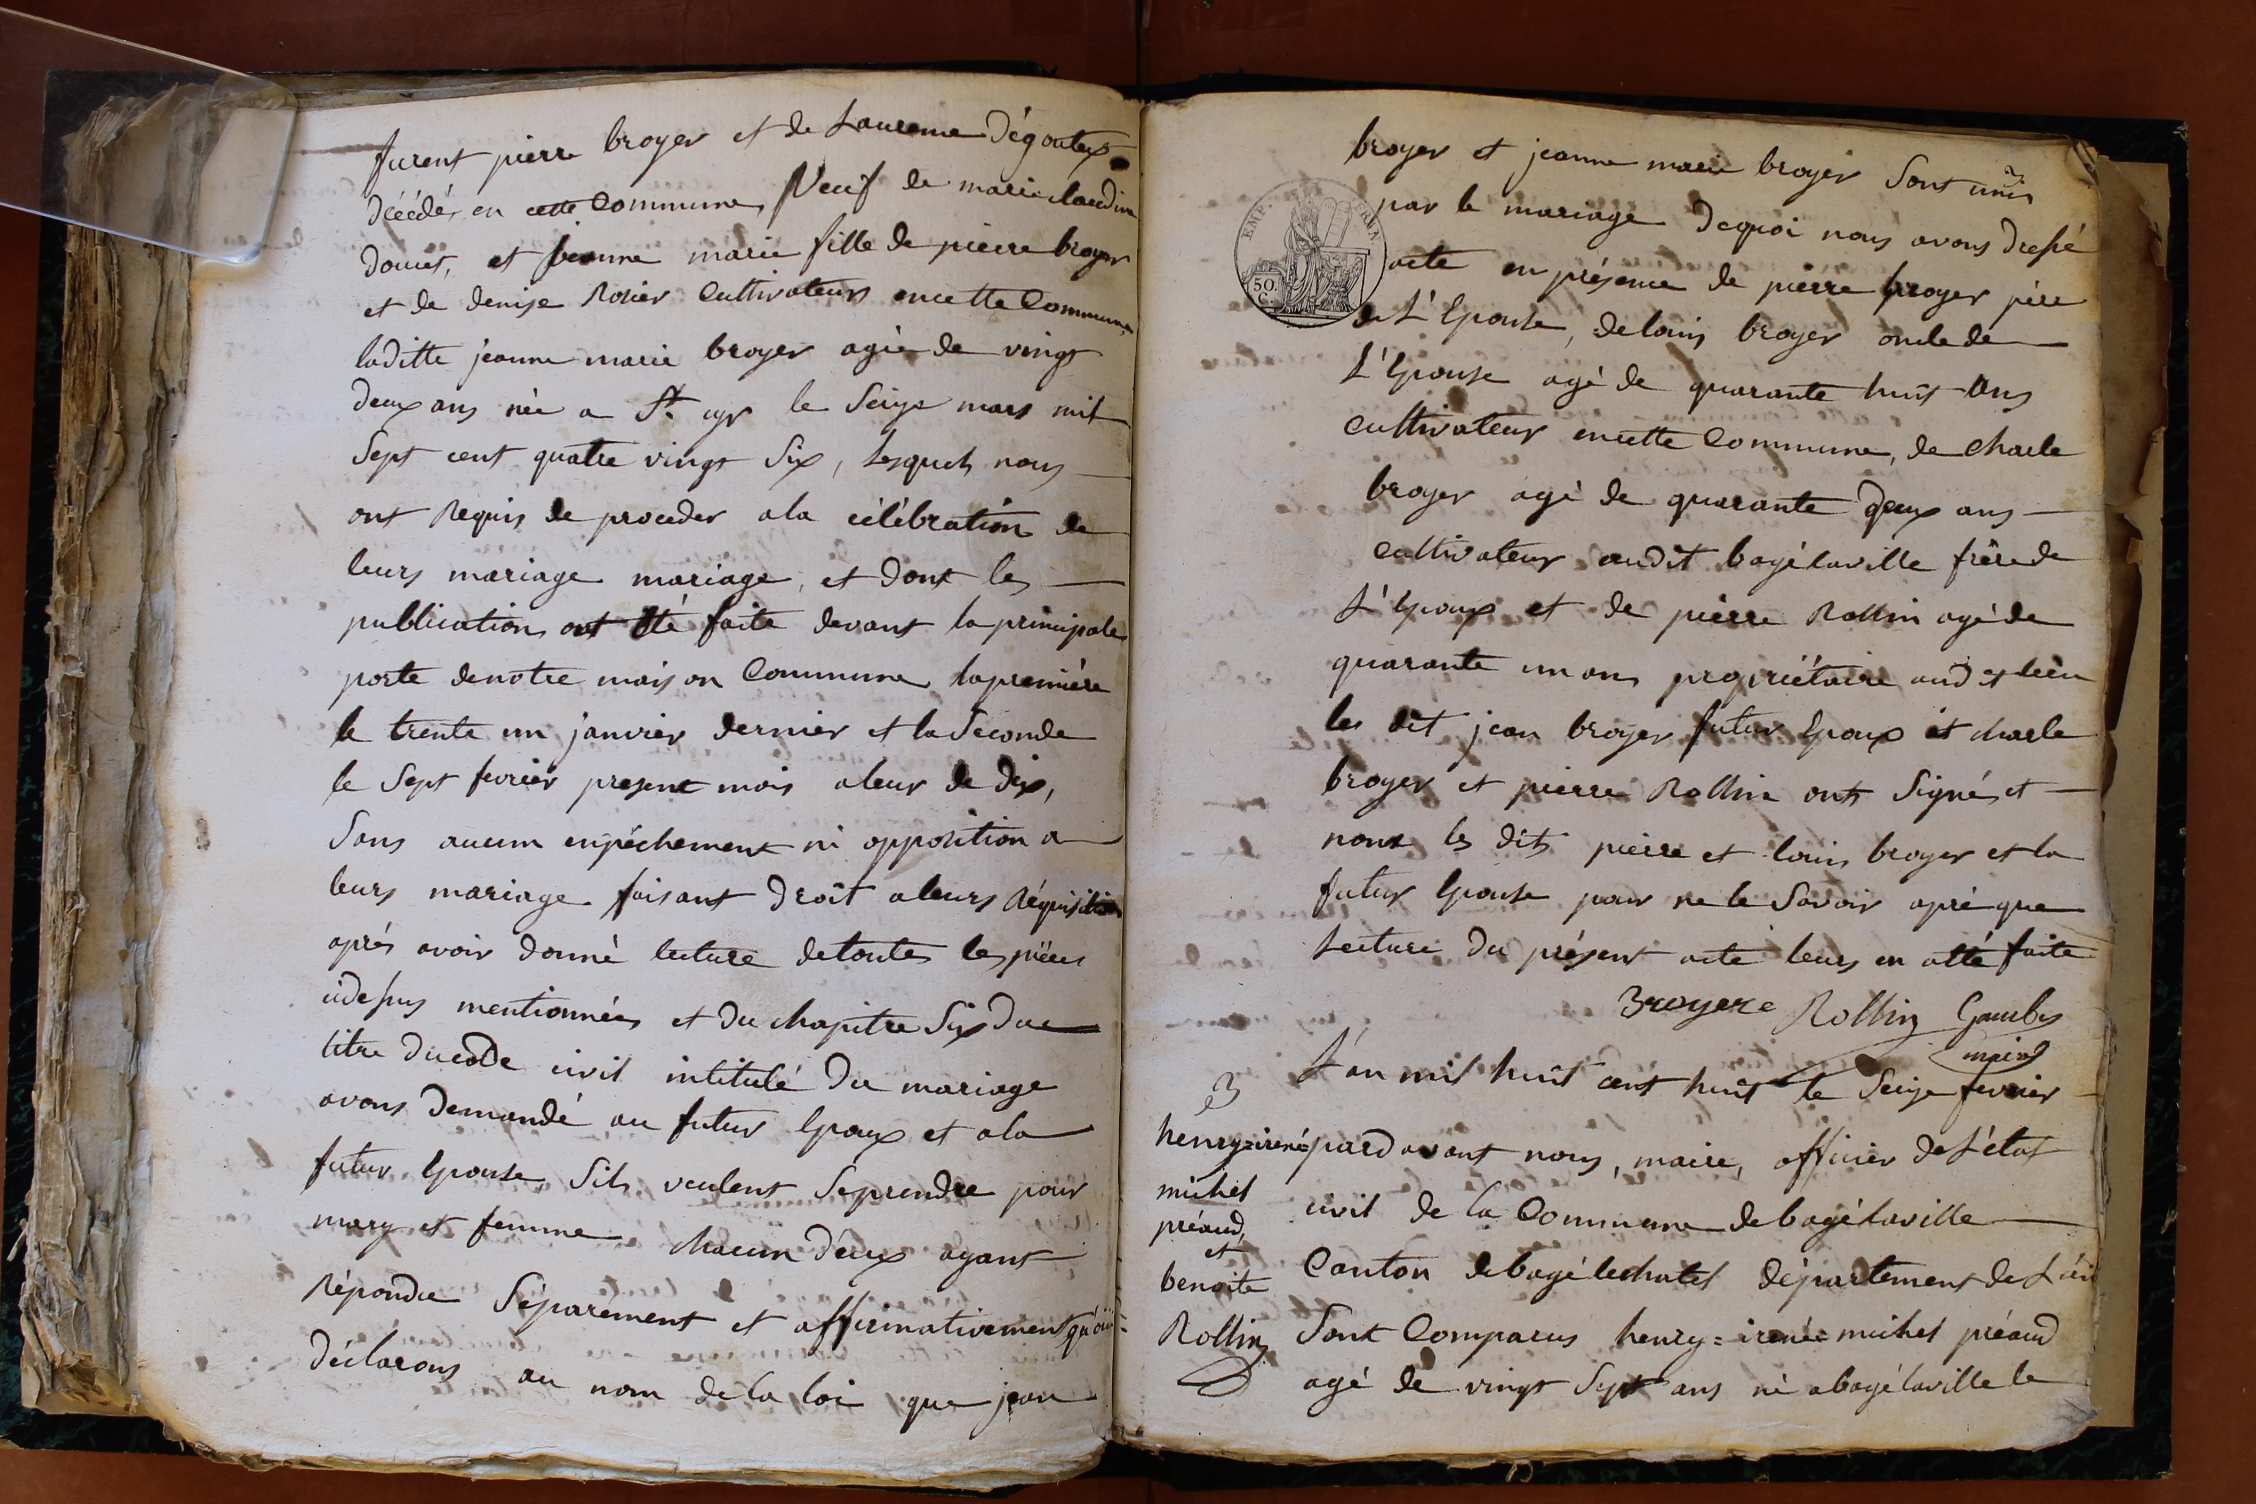 furent pierre broyer et de Laurence Dégouteux
décédés en cette Commune, Veuf de marie claudine
doucet, et jeanne marie fille de pierre broyer
et de denise Rolier Cultivateurs encette Commune
laditte jeanne marie broyer agée de vingt
deux ans née a St. cyr le Seize mars mil
Sept cent quatre vingt Six, Lesquels nous
ont Requis de proceder ala célébration de
leurs mariage mariage, et dont les
publication ont été faite devant la principale
porte denotre maison Commune, la première
le trente un janvier dernier et la Seconde
le Sept fevrier present mois aleur de dix,
Sans aucun enpéchement ni opposition a
leurs mariage faisant Droit aleurs Réquisition
aprés avoir donné lecture detoutes les piéces
cidessus mentionnées et du chapitre Six Du
titre Ducode civil intitulé Du mariage
avons Demandé au futur Epoux et ala
futur Epouse Sils veulent Seprendre pour
mary et femme chacun Deux ayant
Répondu Séparément et affirmativement qu'oui
Déclarons au nom de la loi que jean
broyer et jeanne marie broyer Sont unis
par le mariage Dequoi nous avons Dressé
acte en présence de pierre broyer pére
de L'Epouse, de louis broyer oncle de
L'Epouse agé de quarante huit ans
Cultivateur encette Commune, de charle
broyer agé de quarante deux ans
Cultivateur audit bagélaville frére de
L'Epoux et de pierre Rollin agé de
quarante un ans propriétaire aud et lieu
les dit jean broyer futur Epoux et charle
broyer et pierre Rollin ont Signés et
nonz les dits pierre et louis broyer et la
futur Epouse pour ne le Savoir aprè que
Lecture Du présent acte leurs en atté faite
Broyere Rollin Gambes
maire
L'an mil huit cent huit le Seize fevrier
pardavant nous, maire, officier de L'état
civil de la Commune debagélaville
Canton debagélechatel département de L'ain
Sont Comparus henry = irenée = michel préaud
agé de vingt Sept ans né abagélaville le
henry = irené
michel
préaud,
et
benoite
Rollin
EMP.
50.
C.